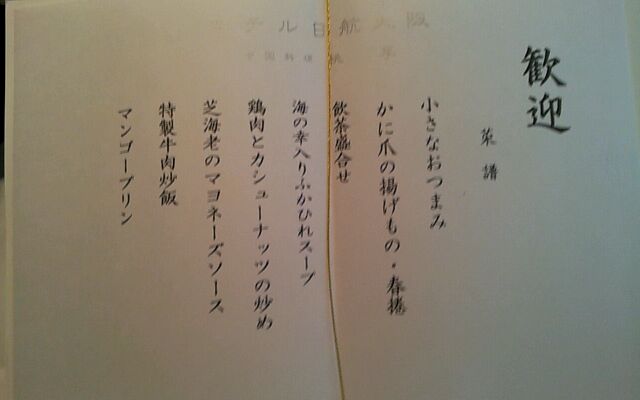 歓迎
菜譜
小さなおつまみ
かに爪の揚げもの・春捲
飲茶盛合せ
海の幸入りふかひれスープ
鶏肉とカシューナッツの炒め
芝海老のマヨネーズソース
特製牛肉炒飯
マンゴープリン
ホテル日航大阪